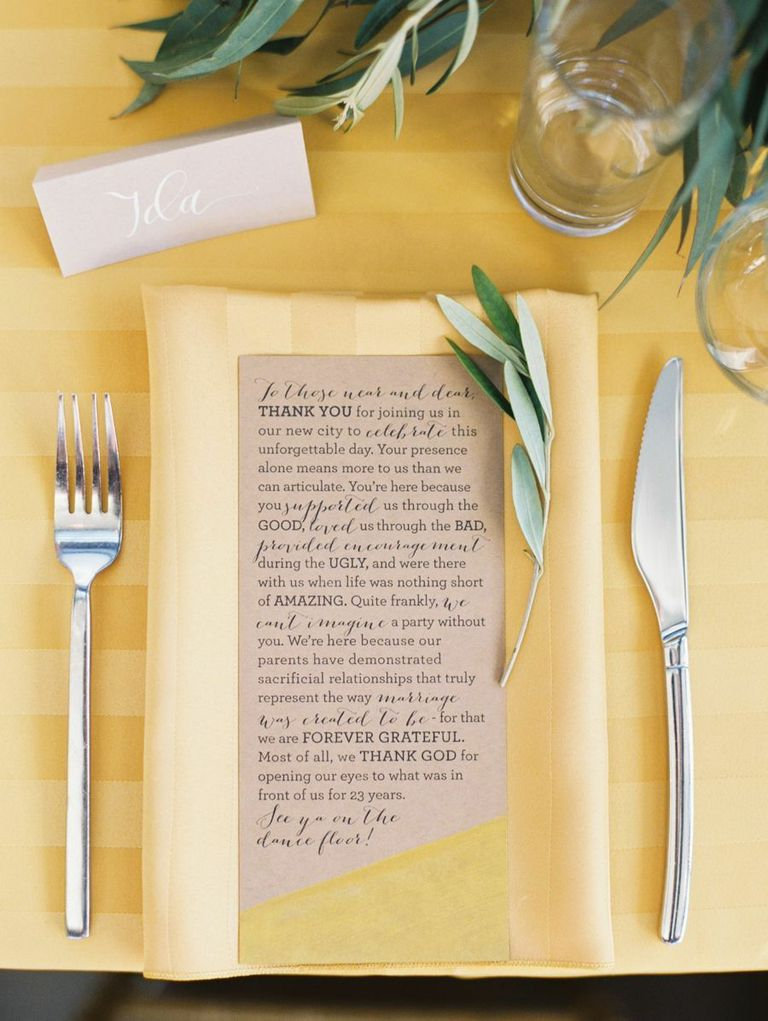 Ida
To those near and dear,
THANK YOU for joining us in
our new city to celebrate this
unforgettable day. Your presence
alone means more to us than we
can articulate. You're here because
you supported us through the
GOOD, loved us through the BAD,
provided encouragement
during the UGLY, and were there
with us when life was nothing short
of AMAZING. Quite frankly, we
can't imagine a party without
you. We're here because our
parents have demonstrated
sacrificial relationships that truly
represent the way marriage
was created to be - for that
we are FOREVER GRATEFUL.
Most of all, we THANK GOD for
opening our eyes to what was in
front of us for 23 years.
See ya on the
dance floor!